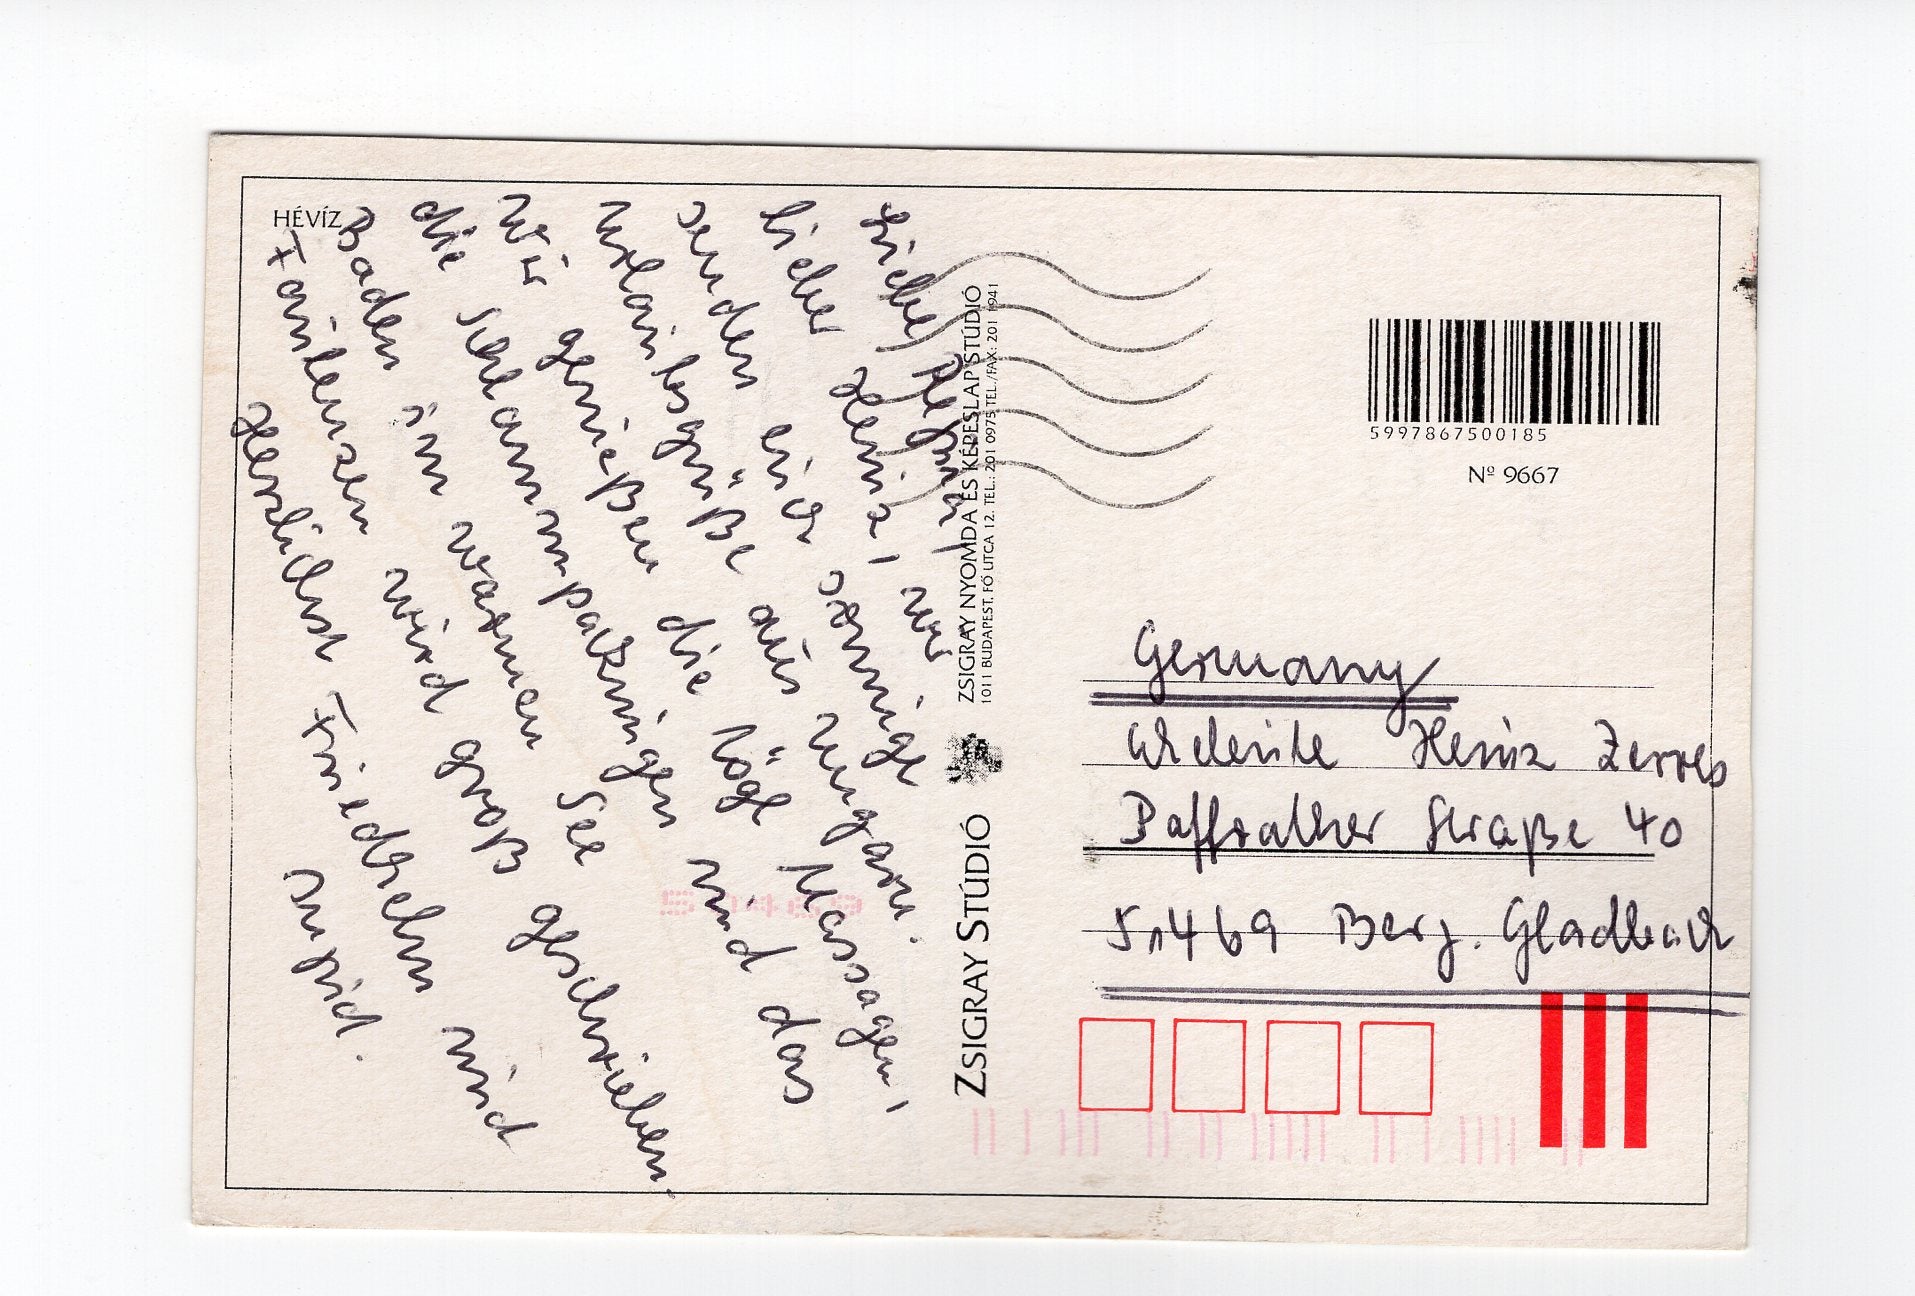 HÉVÍZ
Liebe
lieber Heinz, wir
senden euch sonnige
Urlaubsgrüße aus Ungarn.
Wir genießen die tägl Massagen,
die Schlammpackungen und das
Baden im warmen See
Faulenzen wird groß geschrieben.
Herzlichst Friedhelm und
Sigrid.
ZSIGRAY STÚDIÓ
ZSIGRAY NYOMDA ÉS KÉPESLAP STÚDIÓ
1011 BUDAPEST. FŐ UTCA 12. TEL.: 201 0975 TEL./FAX: 201 1941
5997867500185
Nº 9667
Germany
Eheleute Heinz Zerres
Paffrather Straße 40
51469 Berg. Gladbach
51469